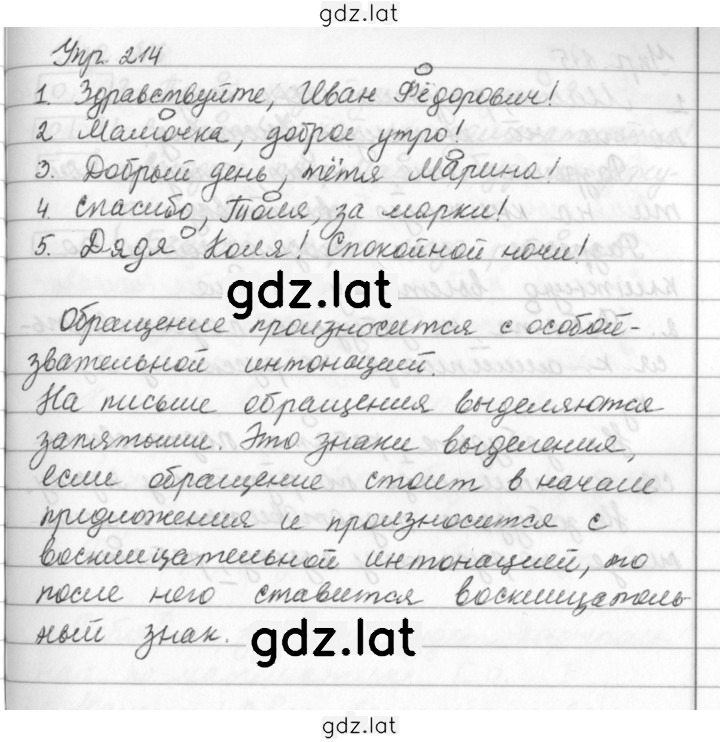 gdz.lat
Упр. 214
1. Здравствуйте, Иван Фёдорович!
2 Мамочка, доброе утро!
3. Добрый день, тётя Марина!
4. Спасибо, Толя, за марки!
5. Дядя Коля! Спокойной ночи!
gdz.lat
Обращение произносится с особой-
звательной интонацией.
На письме обращения выделяются
запятыми. Это знаки выделения,
если обращение стоит в начале
предложения и произносится с
восклицательной интонацией, то
после него ставится восклицатель-
ный знак.
gdz.lat
gdz.lat